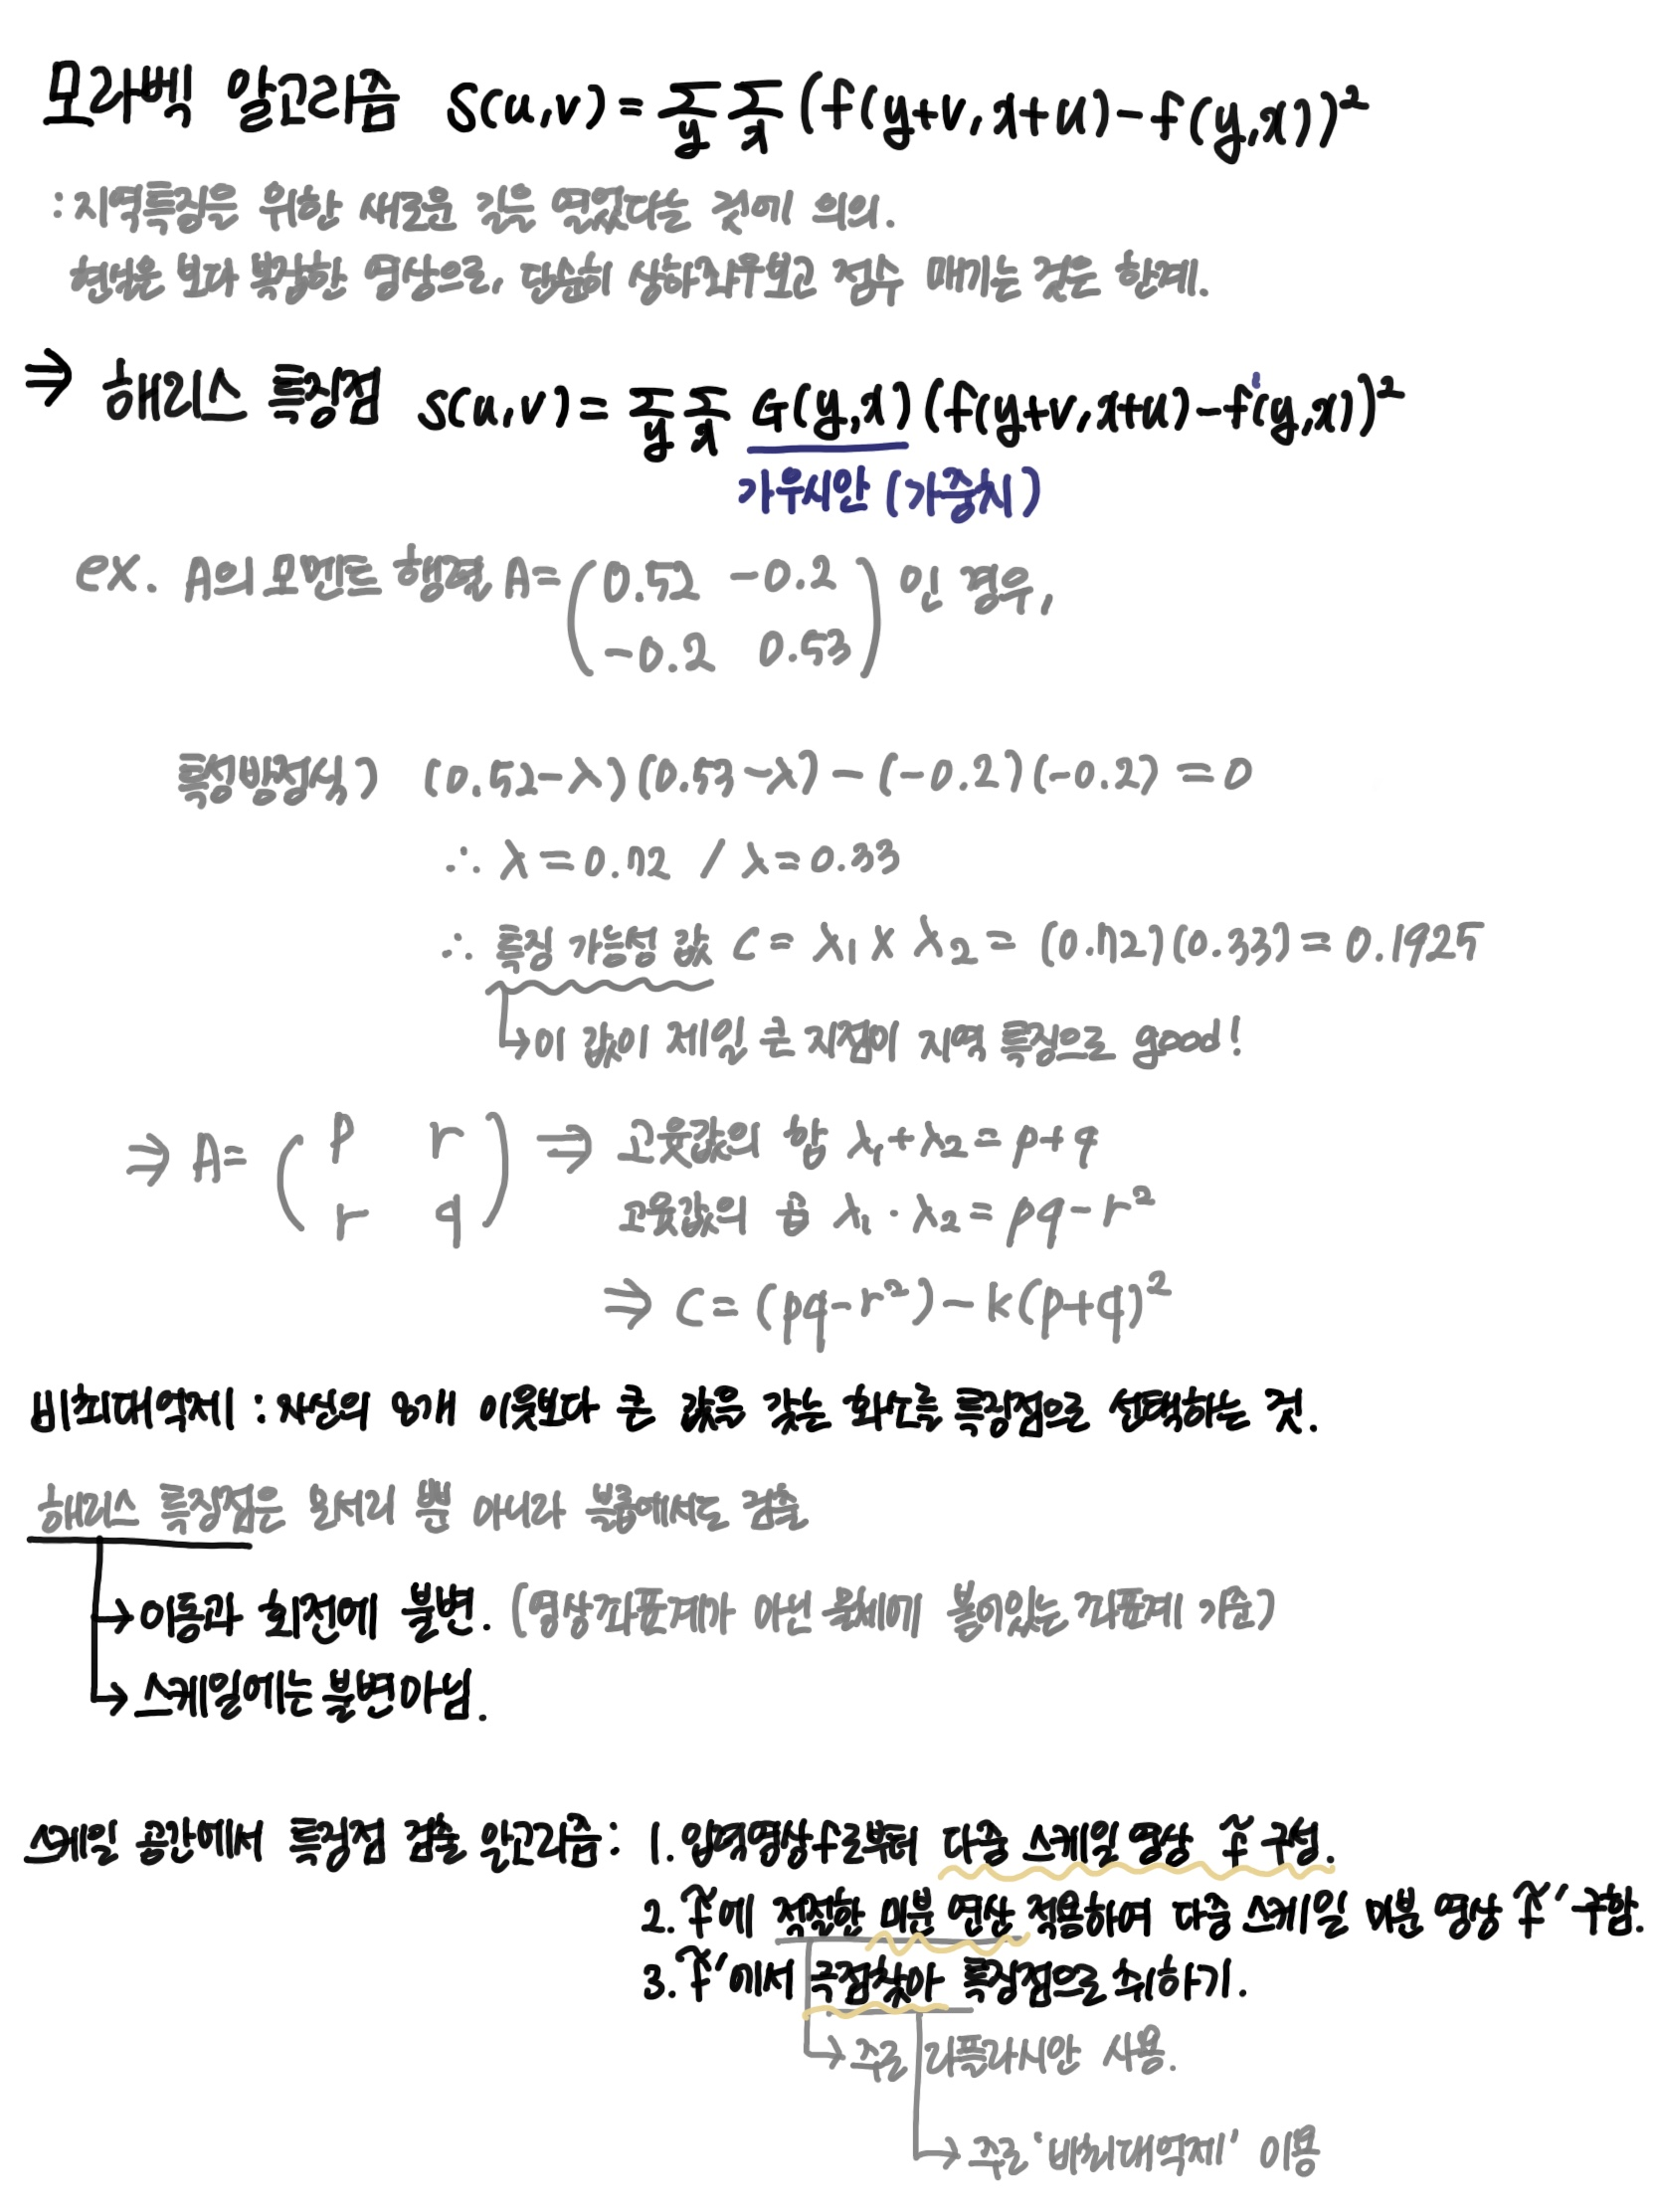 모라벡 알고리즘 S(u,v) = Σy Σx (f(y+v, x+u) - f(y,x))²
: 지역특징을 위한 새로운 길을 열었다는 것에 의의.
현실은 보다 복잡한 영상으로, 단순히 상하좌우보고 점수 매기는 것은 한계.
⇒ 해리스 특징점 S(u,v) = Σy Σx G(y,x) (f(y+v, x+u) - f(y,x))²
가우시안 (가중치)
ex. A의 모멘트 행렬 A= (0.52 -0.2
-0.2 0.53) 인 경우,
특성방정식) (0.52-λ)(0.53-λ) - (-0.2)(-0.2) = 0
∴ λ = 0.72 / λ = 0.33
∴ 특징 가능성 값 C = λ₁ x λ₂ = (0.72)(0.33) = 0.1925
↳ 이 값이 제일 큰 지점이 지역 특징으로 good!
⇒ A= (p r ⇒ 고윳값의 합 λ₁+λ₂ = p+q
r q) 고윳값의 곱 λ₁·λ₂ = pq-r²
⇒ C = (pq-r²) - k(p+q)²
비최대억제 : 자신의 8개 이웃보다 큰 값을 갖는 화소를 특징점으로 선택하는 것.
해리스 특징점은 모서리 뿐 아니라 블롭에서도 검출
→ 이동과 회전에 불변. (영상좌표계가 아닌 물체에 붙어있는 좌표계 기준)
→ 스케일에는 불변아님.
스케일 공간에서 특징점 검출 알고리즘 : 1. 입력영상f로부터 다중 스케일 영상 f̃ 구성.
2. f̃에 적절한 미분 연산 적용하여 다중 스케일 미분 영상 f̃′ 구함.
3. f̃′에서 극점찾아 특징점으로 취하기.
↳ 주로 라플라시안 사용.
↳ 주로 '비최대억제' 이용